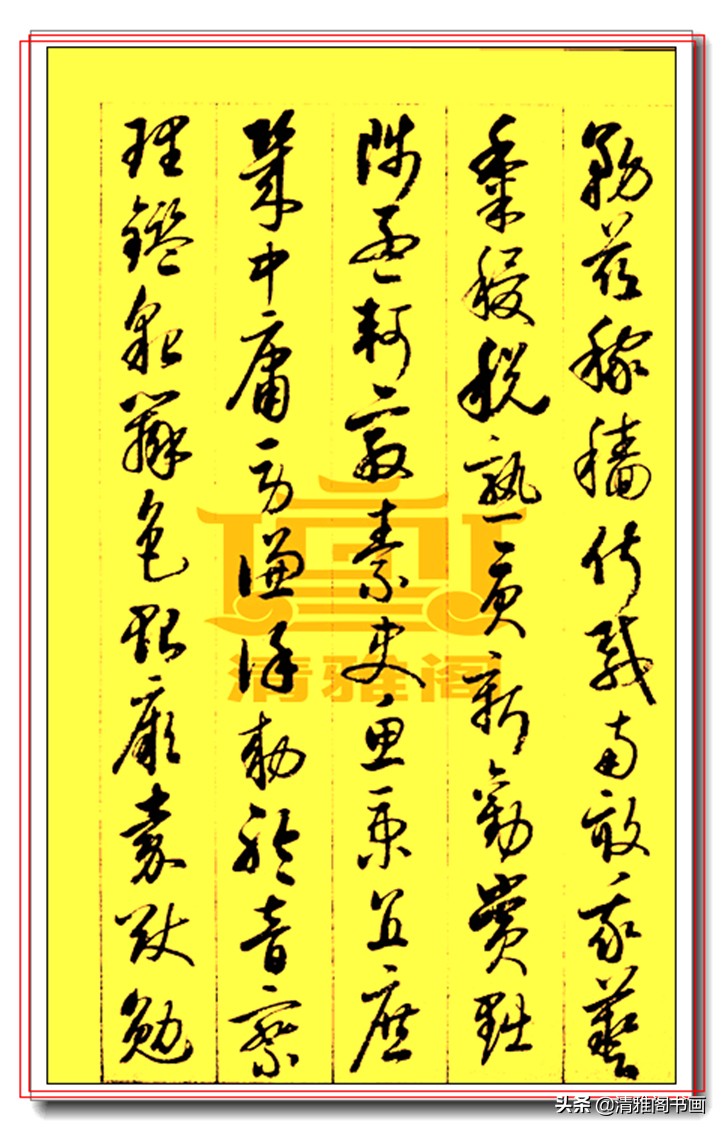 務茲稼穡俶載南畝我藝
黍稷稅熟貢新勸賞黜
陟孟軻敦素史魚秉直庶
幾中庸勞謙謹勅聆音察
理鑑貌辨色貽厥嘉猷勉
清雅阁
头条 @清雅阁书画